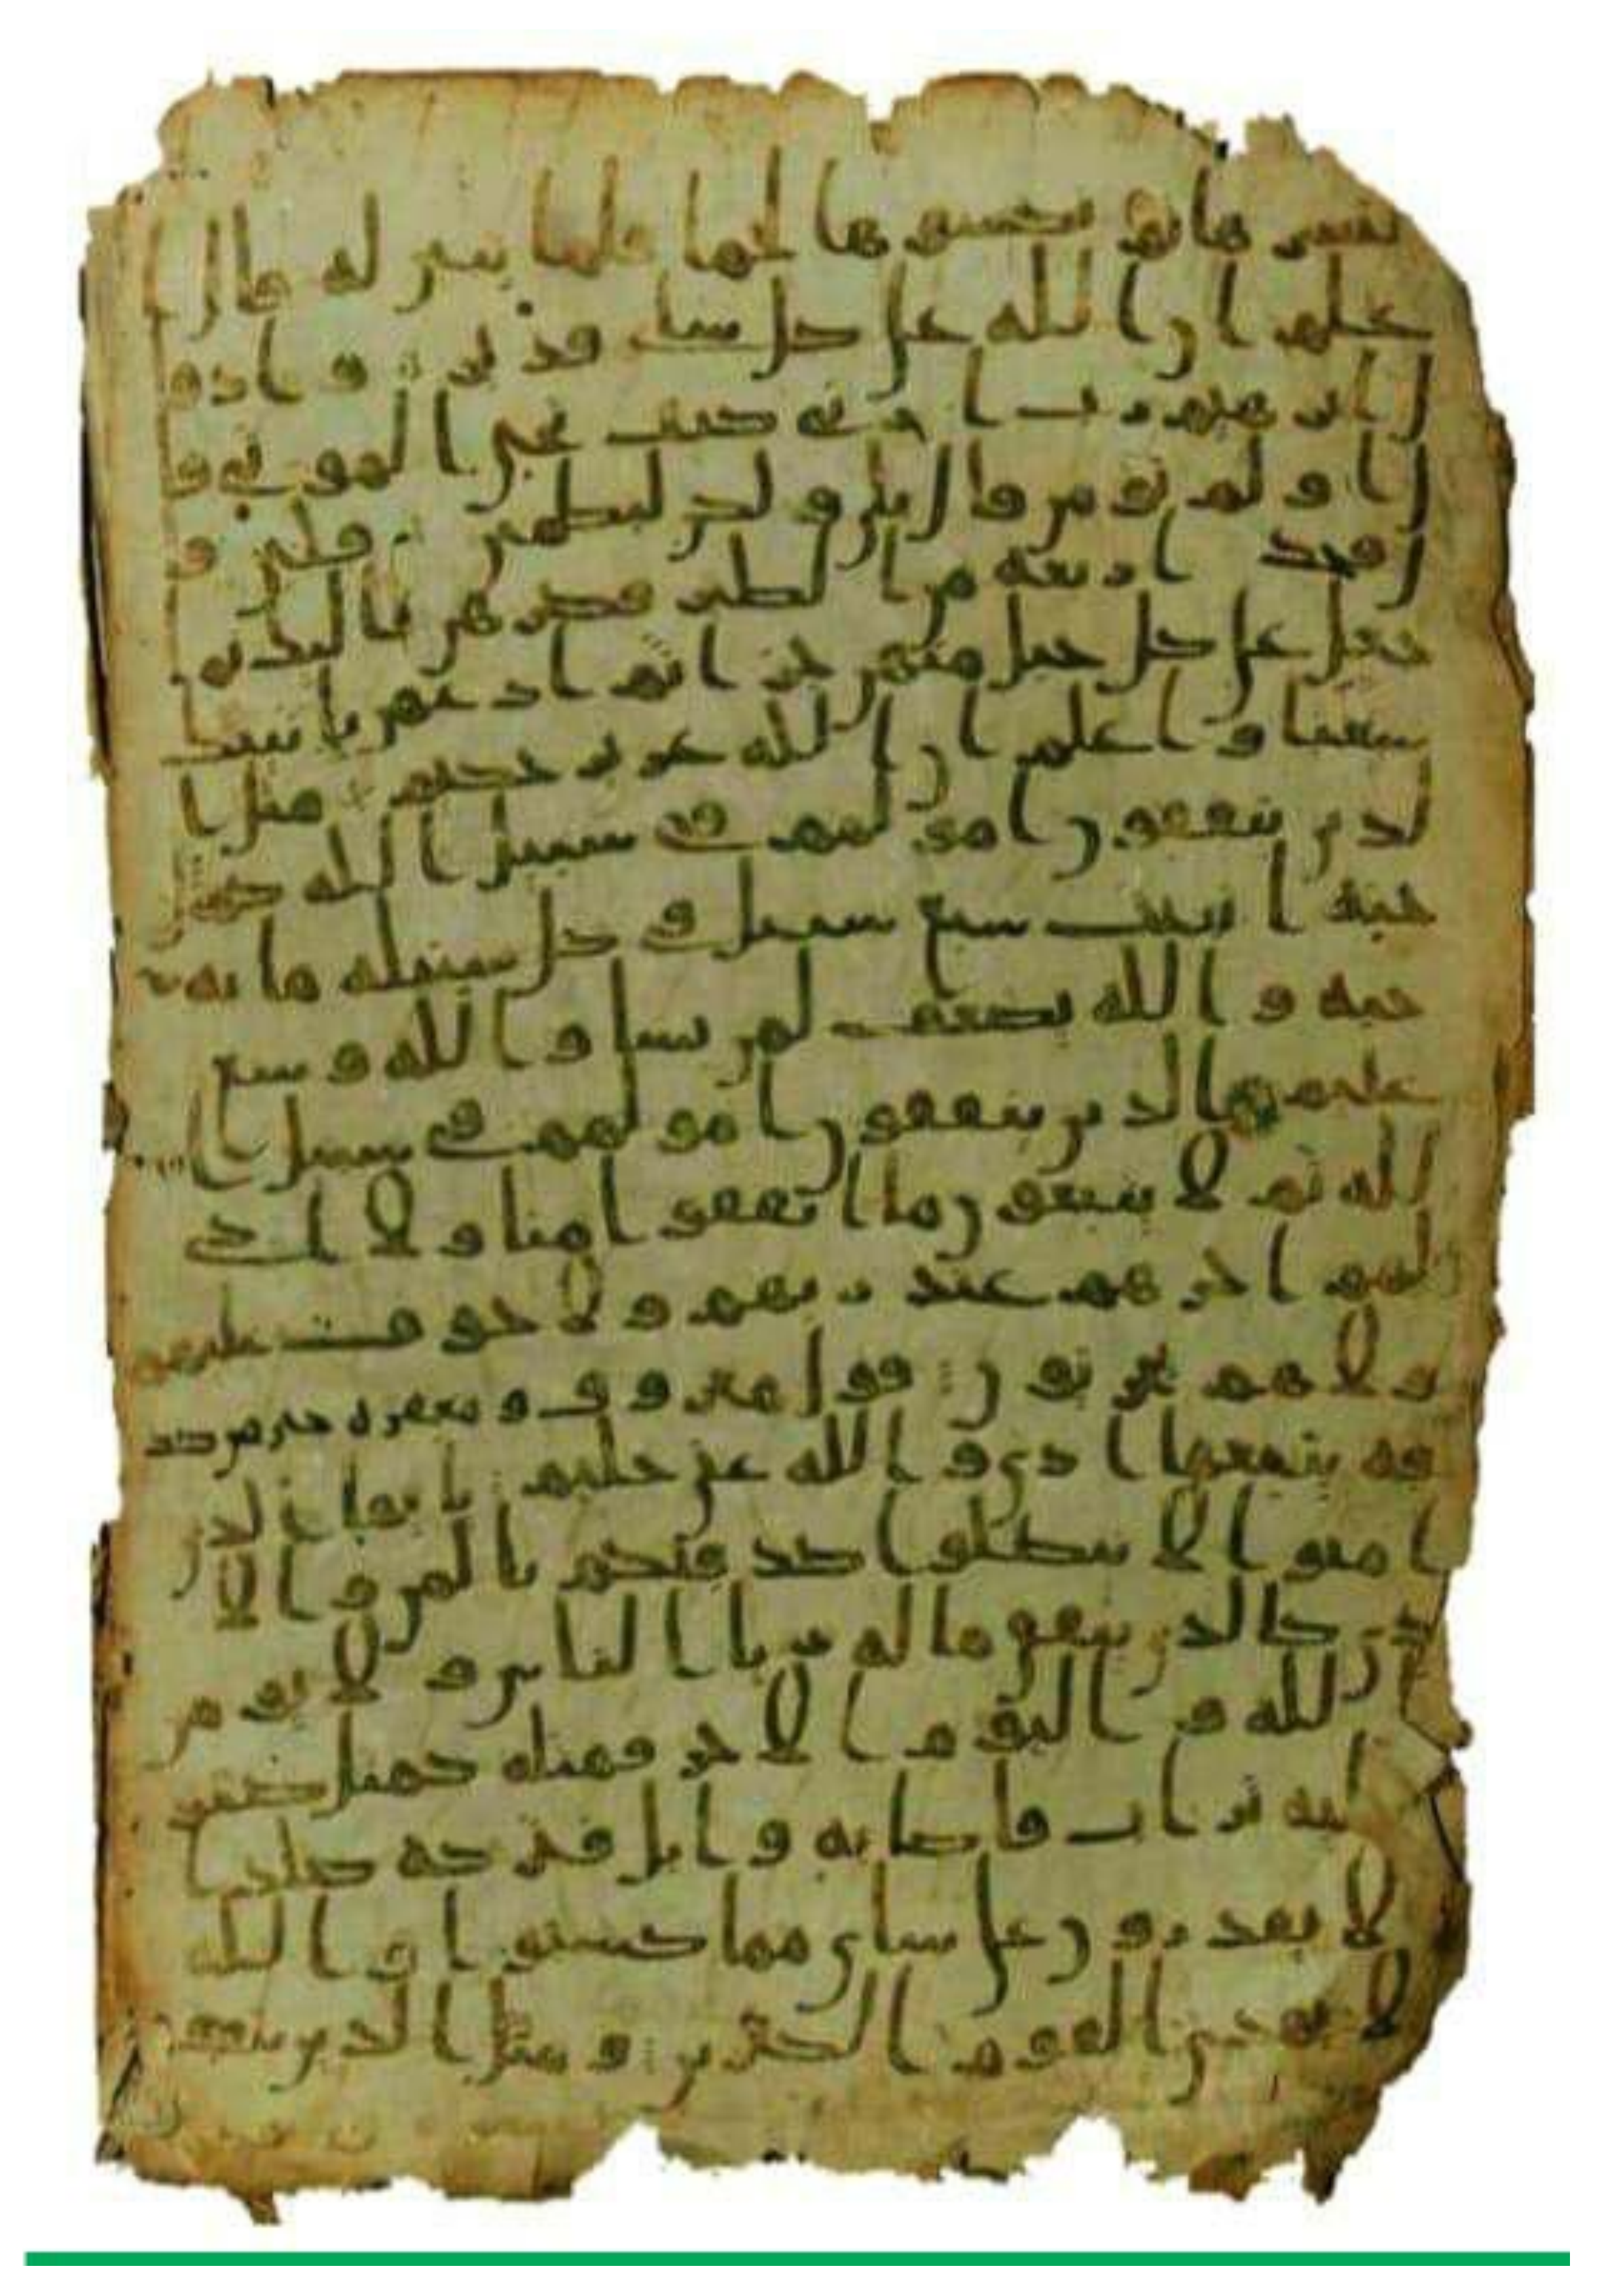 ننشزها ثم نكسوها لحما فلما تبين له قال ا
علم ان الله على كل شيء قدير و اذ قا
ل ابرهيم رب ارني كيف تحيي الموتى قا
ل اولم تومن قال بلى ولكن ليطمئن قلبي قا
ل فخذ اربعة من الطير فصرهن اليك ثم ا
جعل على كل جبل منهن جزا ثم ادعهن ياتينك
سعيا واعلم ان الله عزيز حكيم مثل ا
لذين ينفقون امولهم في سبيل الله كمثل
حبة انبتت سبع سنبل في كل سنبلة مائة
حبة والله يضعف لمن يشا والله وسع
عليم الذين ينفقون امولهم في سبيل ا
لله ثم لا يتبعون ما انفقوا منا ولا اذى
لهم اجرهم عند ربهم ولا خوف عليهم
ولا هم يحزنون قول معروف ومغفرة خير من صد
قة يتبعها اذى والله غني حليم يايها الذين
امنوا لا تبطلوا صدقتكم بالمن والا
ذى كالذي ينفق ماله ريا الناس ولا يومن
بالله واليوم الاخر فمثله كمثل صفون
عليه تراب فاصابه وابل فتركه صلدا
لا يقدرون على شاي مما كسبوا والله
لا يهدي القوم الكفرين ومثل الذين ينفقون